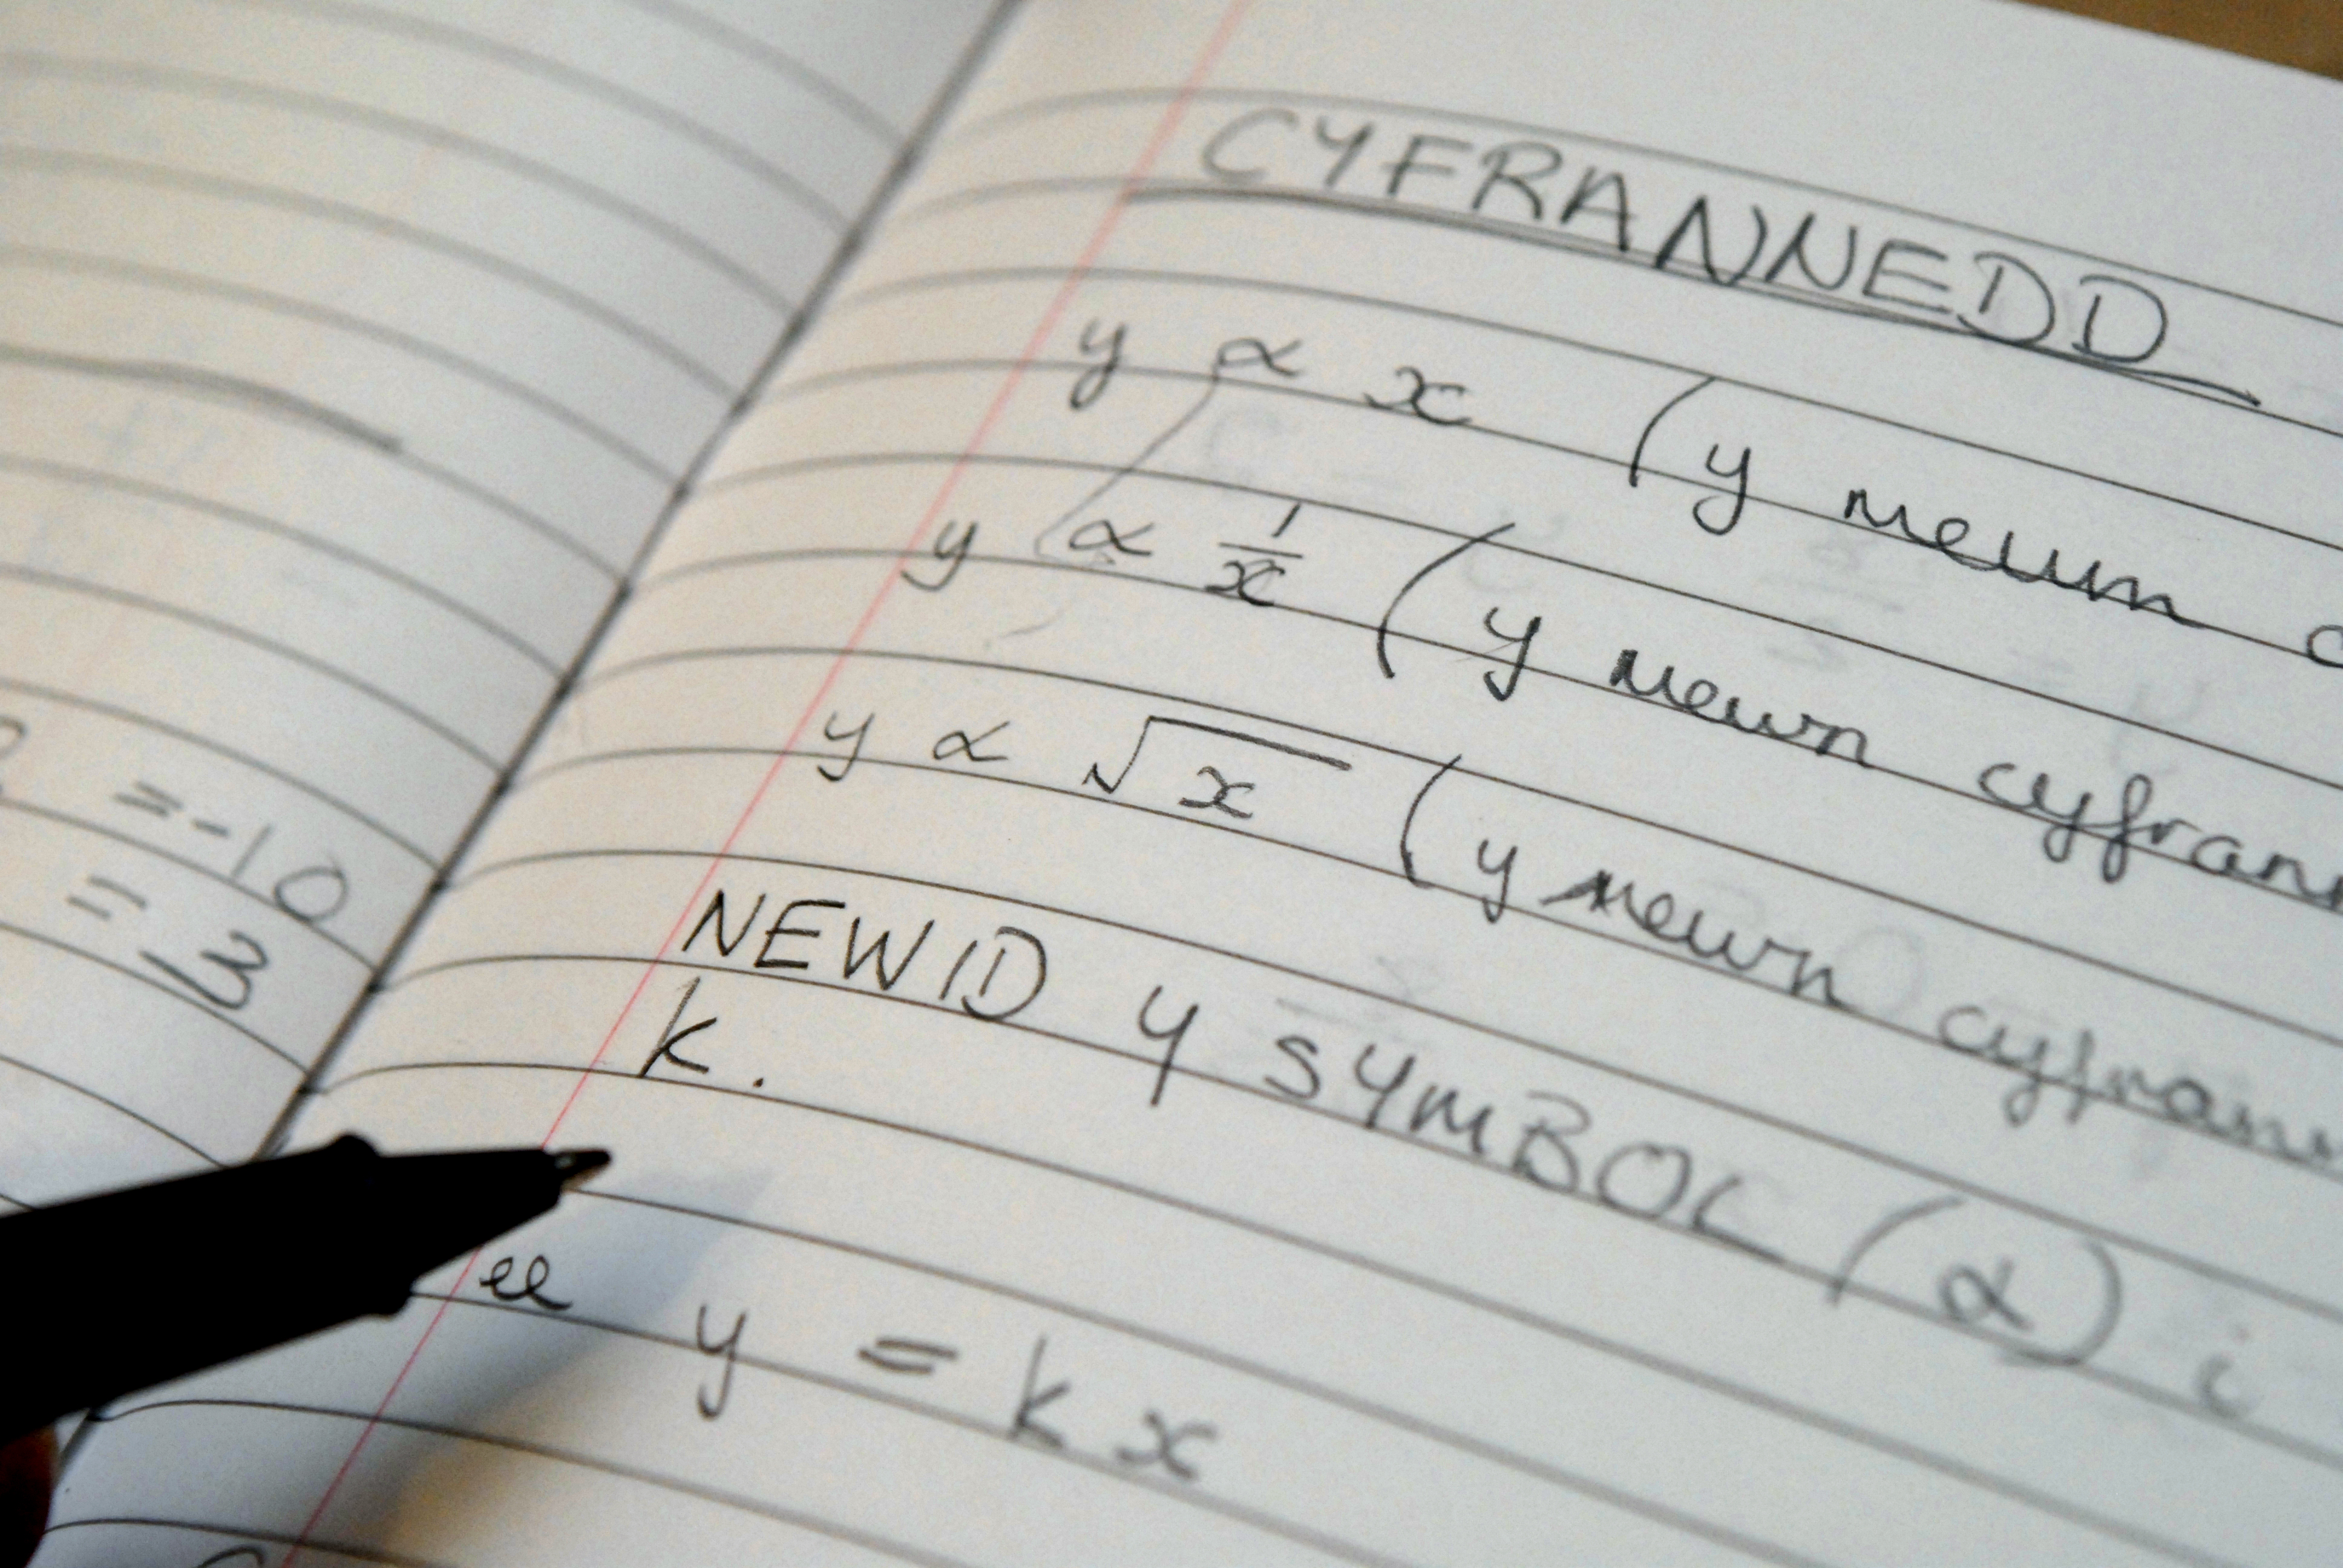 CYFRANNEDD
y ∝ x (y mewn
y ∝ 1/x (y mewn cyfrann
y ∝ √x (y mewn cyfrann
NEWID Y SYMBOL (∝) i
k.
ee y = kx
= -10
= 13